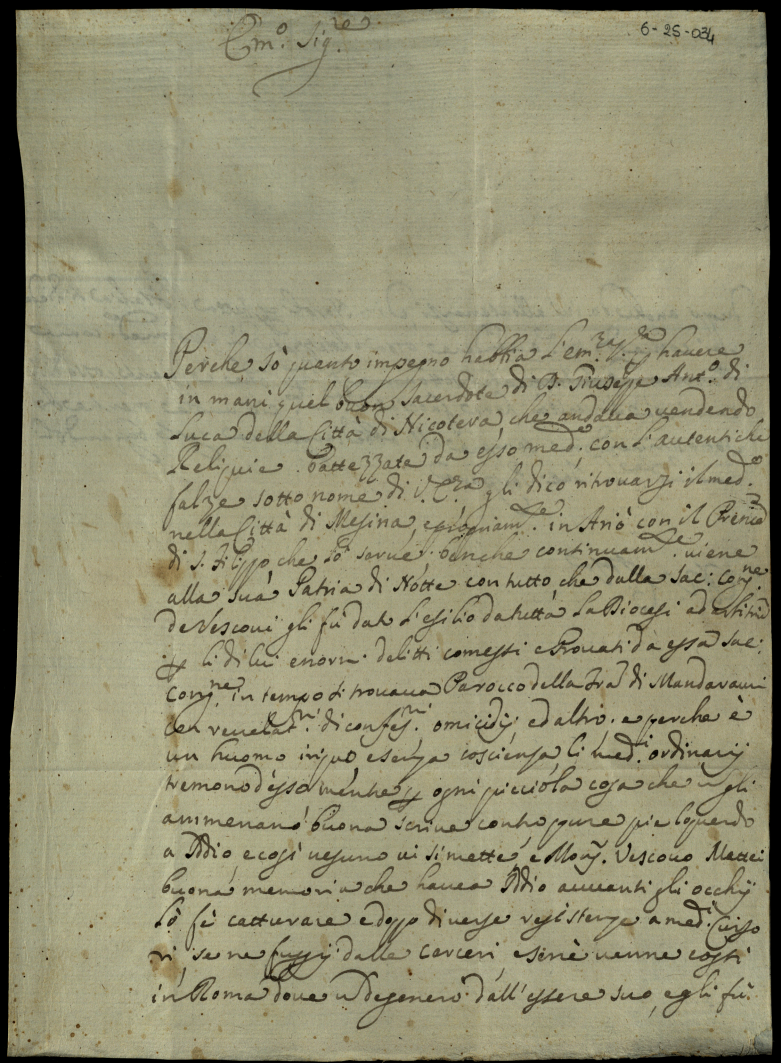 6-25-034
Em.º Sig.re
Perche sò quanto impegno habbia l'em.za V.ra havere
in mani quel buon Sacerdote di D. Giuseppe Ant.º di
Luca della Città di Nicotera, che andava vendendo
Reliquie battezzate da esso med.º con l'autentiche
falze sotto nome di V. Em.za gli dico ritrovarsi il med.º
nella Città di Mesina, e in con il Prencip
di S. Filippo che lo serve, benche continuam.te viene
alla sua Patria di Notte con tutto che dalla Sac: Con.ne
de Vescovi gli fù dato l'esilio da tutta la Diocesi
p li di lui enorm. delitti comessi e Provati da essa Sac:
Con.ne in tempo si trovava Parocco della di Mandaravuni
revelat.ni di confes.ni omicidij ed altro. e perche è
un huomo iniquo e senza coscienza li med.i ordinarij
tremono d'esso mentre p ogni picciola cosa che n gli
ammenano buona scrive contro pure
a Iddio e così nesuno vi si mette, e Mons. Vescovo Mattei
buona memoria che havea Iddio avanti gli occhij
lo fè catturare e doppo diverse resistenze a med.i Curso
ri, se ne fuggì dalle carceri e senè venne costì
in Roma dove n degenerò dall'essere suo, egli fù